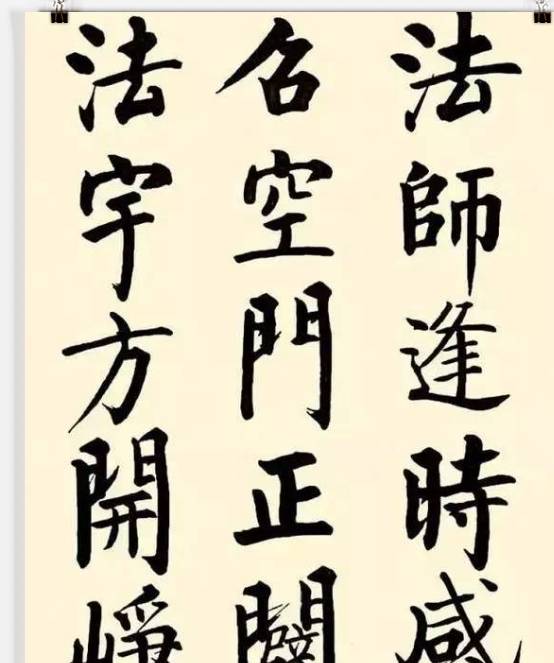 法師逢時感
召空門正闢
法宇方開崢